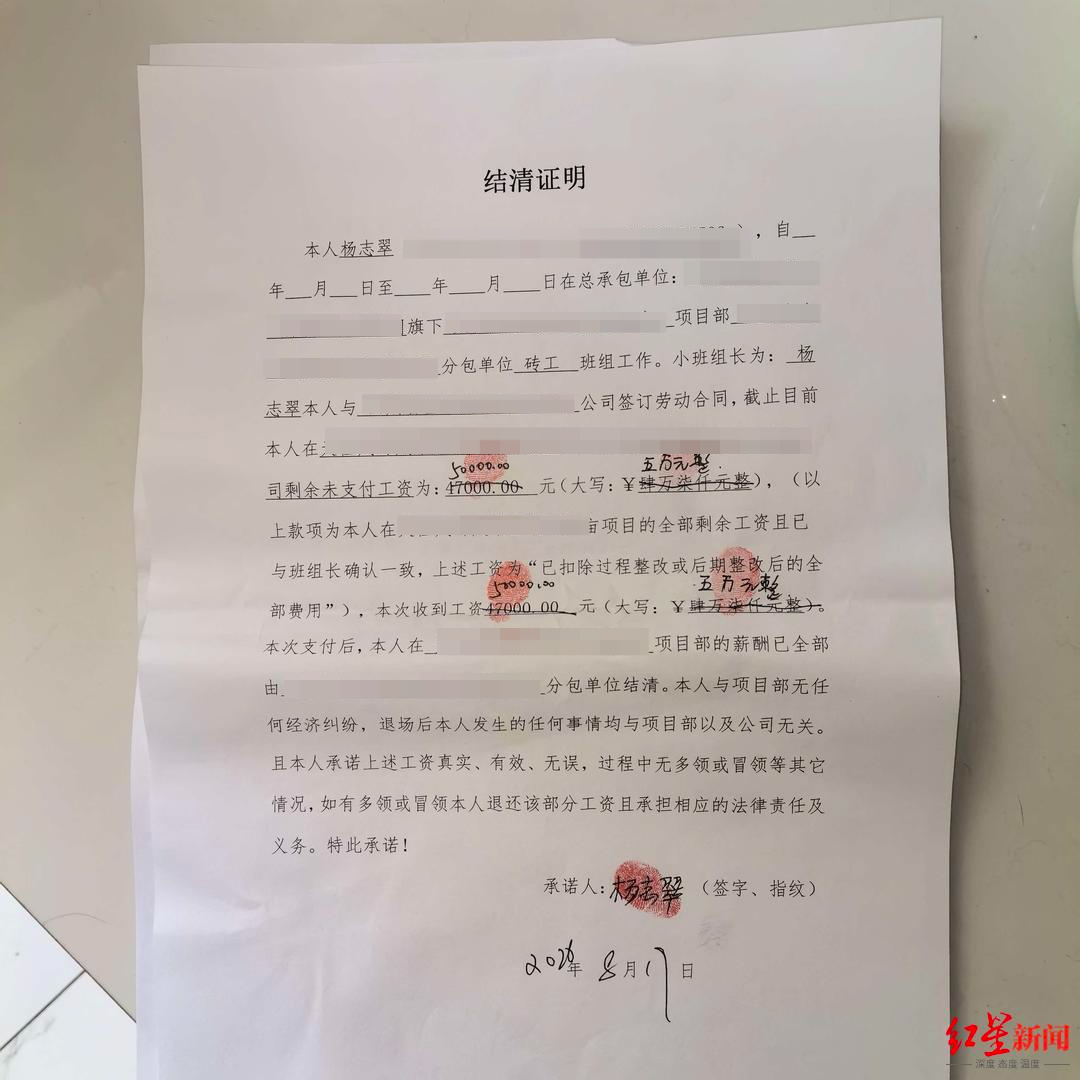 结清证明
本人杨志翠 ），自___
年___月___日至____年____月____日在总承包单位：
旗下 项目部
分包单位 砖工 班组工作。小班组长为： 杨
志翠本人与 公司签订劳动合同，截止目前
本人在
50000.00 五万元整
司剩余未支付工资为：47000.00 元（大写：¥肆万柒仟元整），（以
上款项为本人在 亩项目的全部剩余工资且已
与班组长确认一致，上述工资为“已扣除过程整改或后期整改后的全
50000.00 五万元整
部费用”），本次收到工资47000.00 元（大写：¥肆万柒仟元整）。
本次支付后，本人在 项目部的薪酬已全部
由 分包单位结清。本人与项目部无任
何经济纠纷，退场后本人发生的任何事情均与项目部以及公司无关。
且本人承诺上述工资真实、有效、无误，过程中无多领或冒领等其它
情况，如有多领或冒领本人退还该部分工资且承担相应的法律责任及
义务。特此承诺！
承诺人：杨志翠（签字、指纹）
年 8月17日
红星新闻
深度 态度 温度